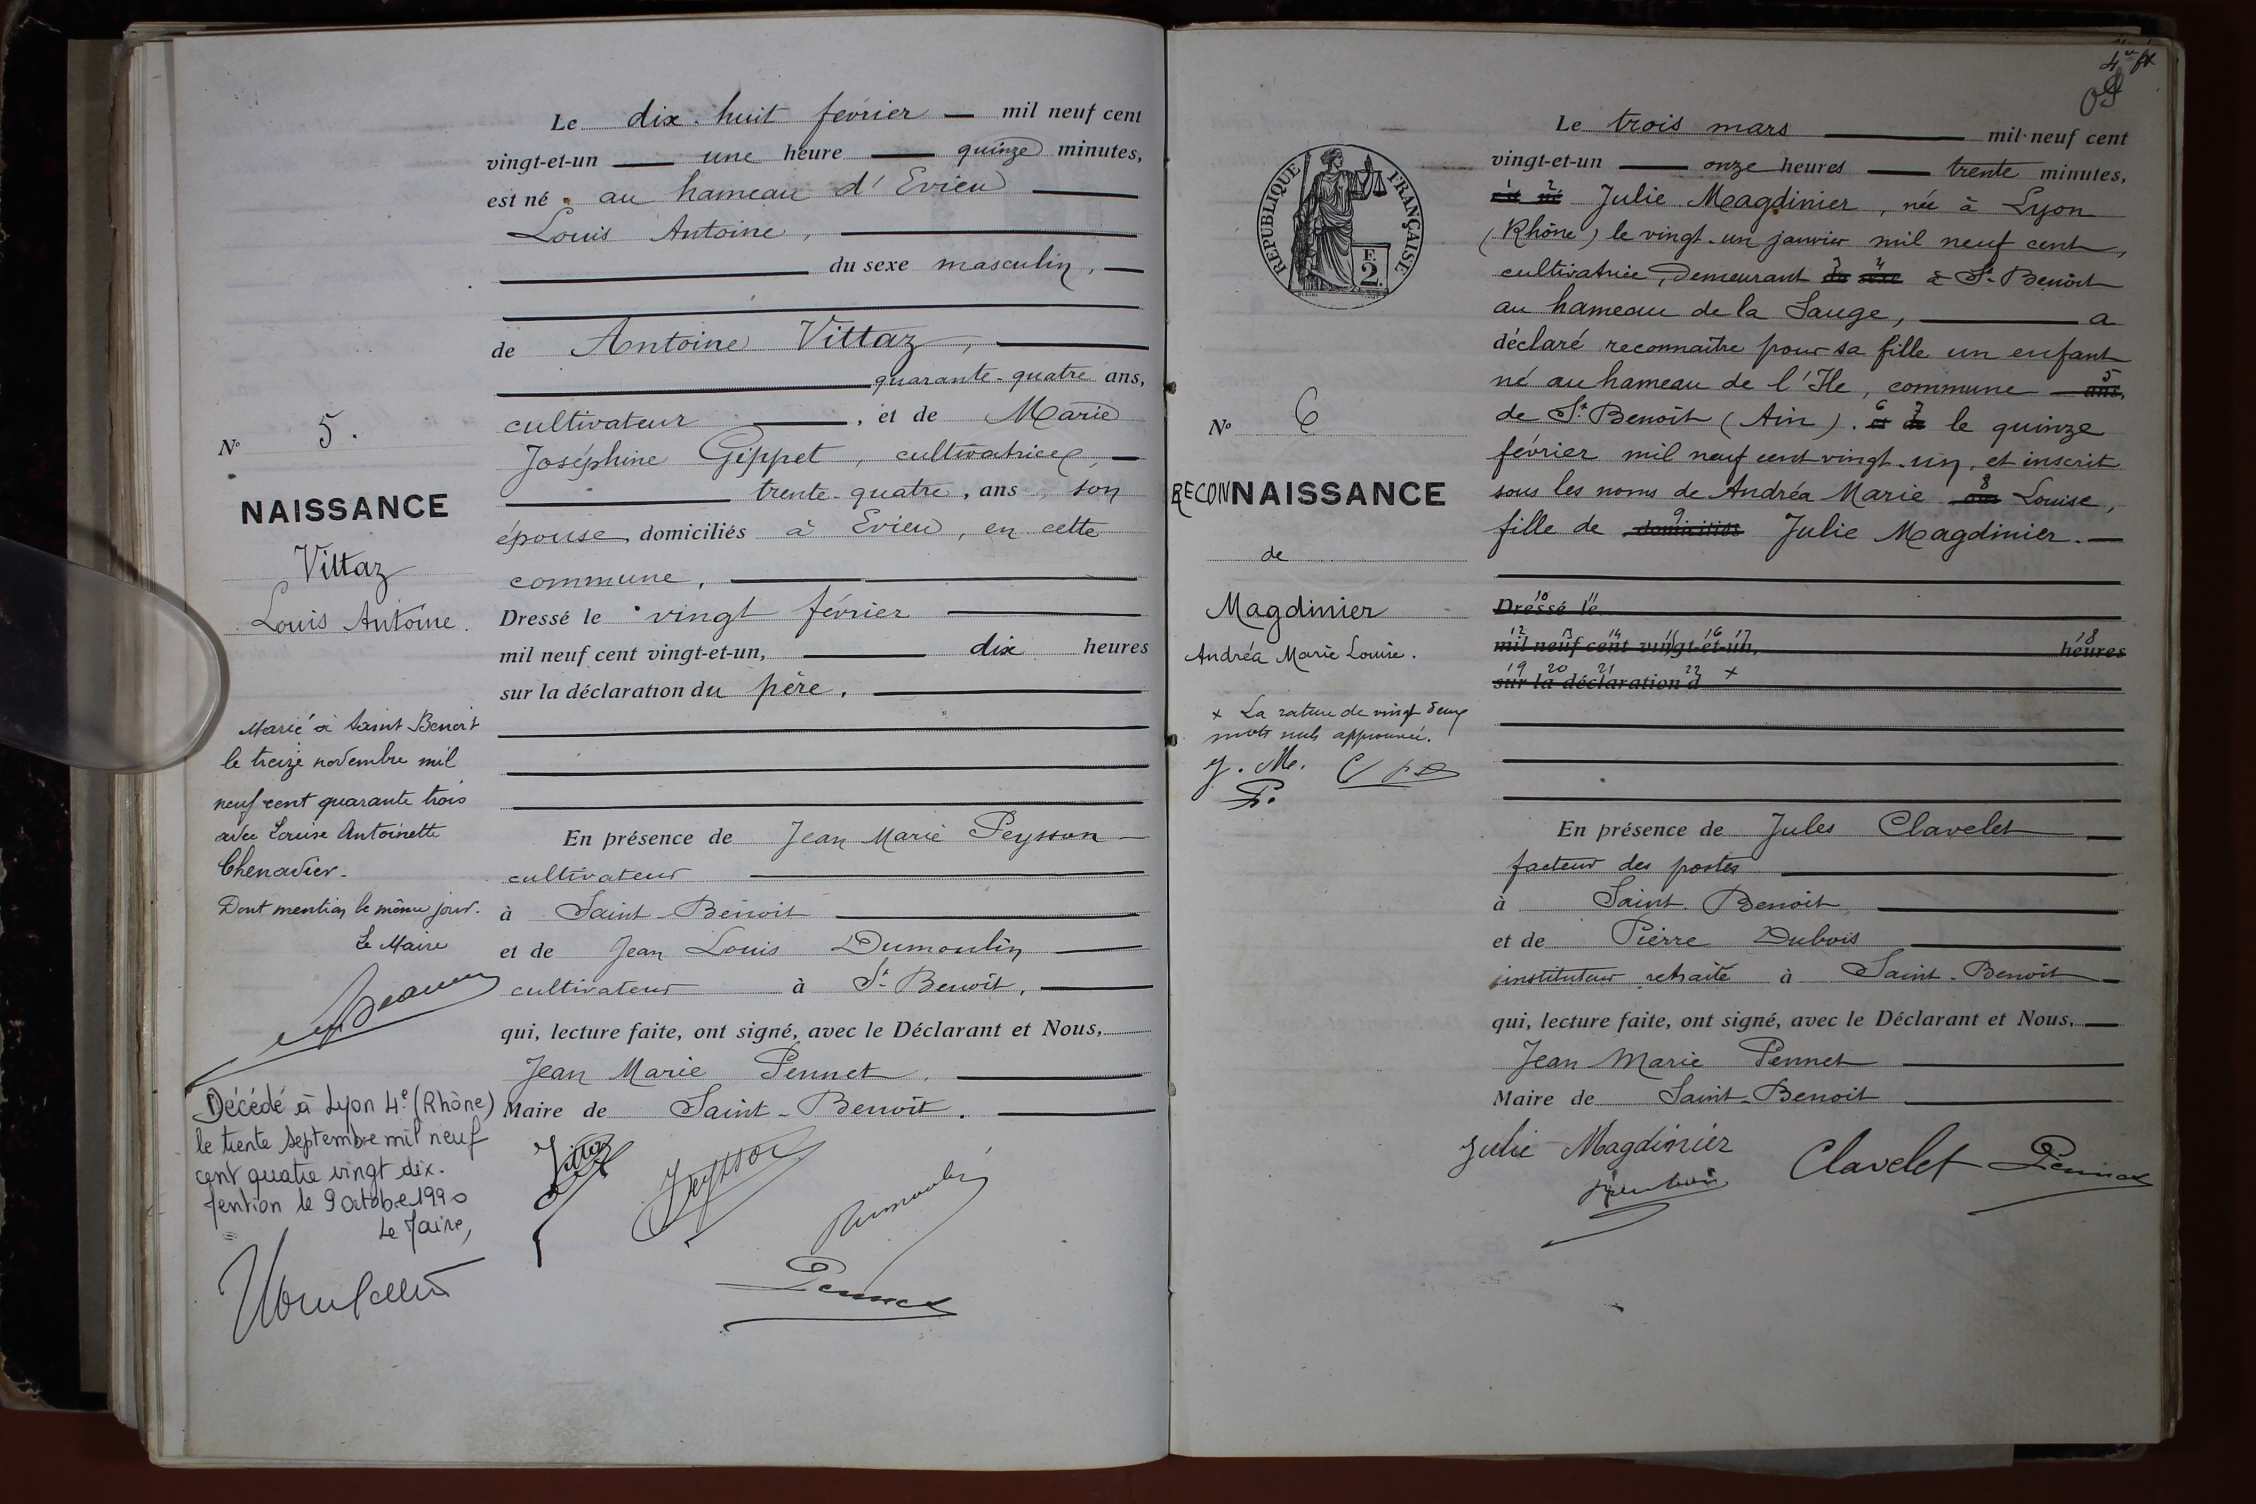 N° 5.
NAISSANCE
Vittaz
Louis Antoine.
Marié à Saint Benoit
le treize novembre mil
neuf cent quarante trois
avec Louise Antoinette
Chenavier.
Dont mention le même jour.
Le Maire
Décédé à Lyon 4e (Rhône)
le trente septembre mil neuf
cent quatre vingt dix.
Mention le 9 octobre 1990
Le Maire,
Le dix-huit février mil neuf cent
vingt-et-un une heure quinze minutes,
est né au hameau d'Evieu
Louis Antoine,
du sexe masculin,
de Antoine Vittaz,
quarante-quatre ans,
cultivateur, et de Marie
Joséphine Gippet, cultivatrice,
trente-quatre, ans, son
épouse, domiciliés à Evieu, en cette
commune,
Dressé le vingt février
mil neuf cent vingt-et-un, dix heures
sur la déclaration du père.
En présence de Jean Marie Peysson
cultivateur
à Saint-Benoit
et de Jean Louis Dumoulin
cultivateur à St-Benoît,
qui, lecture faite, ont signé, avec le Déclarant et Nous,
Jean Marie Pennet.
Maire de Saint-Benoît.
Vittaz Peysson
Dumoulin
Pennet
4e ft
REPUBLIQUE FRANÇAISE
F.
2.
N° 6
RECONNAISSANCE
de
Magdinier
Andréa Marie Louise.
x La rature de vingt deux
mots nuls approuvée.
J. M.
P.
Le trois mars mil neuf cent
vingt-et-un onze heures trente minutes,
1 2
est né Julie Magdinier, née à Lyon
(Rhône) le vingt-un janvier mil neuf cent,
3 4
cultivatrice, demeurant du sexe à St-Benoît
au hameau de la Sauge, a
déclaré reconnaître pour sa fille un enfant
5
né au hameau de l'Ile, commune ans,
6 7
de St-Benoît (Ain). et de le quinze
février mil neuf cent vingt-un, et inscrit
8
sous les noms de Andréa Marie ans Louise,
9
fille de domiciliés Julie Magdinier.
10 11
Dressé le
12 13 14 15 16 17 18
mil neuf cent vingt-et-un, heures
19 20 21 22
sur la déclaration d x
En présence de Jules Clavelet
facteur des postes
à Saint-Benoit,
et de Pierre Dubois
instituteur retraité à Saint-Benoît
qui, lecture faite, ont signé, avec le Déclarant et Nous,
Jean Marie Pennet
Maire de Saint-Benoit
Julie Magdinier Clavelet Pennet